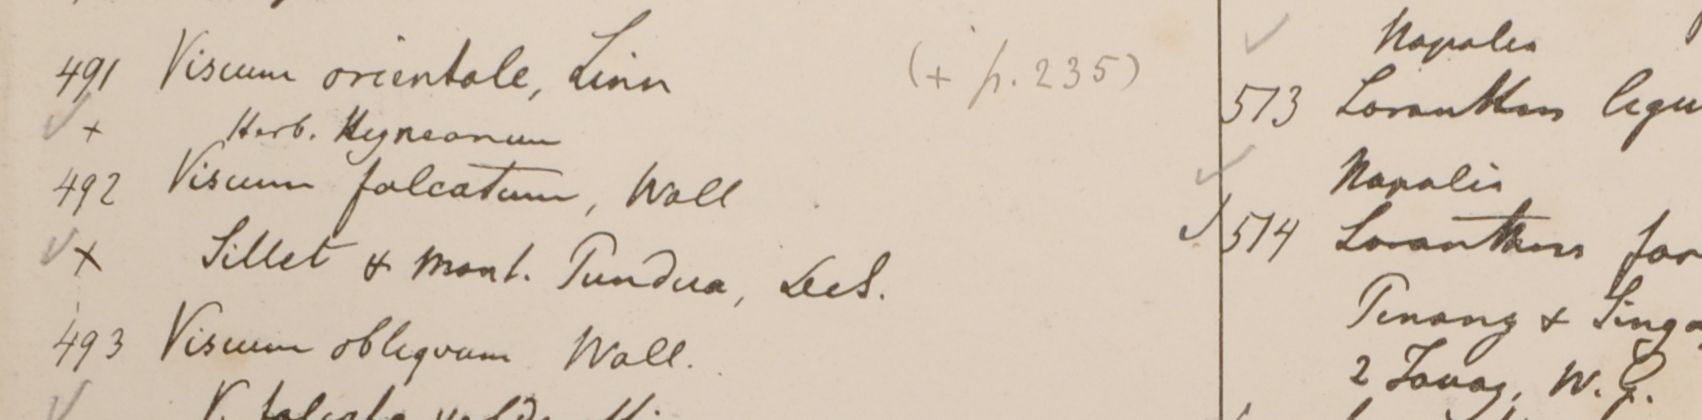 491 Viscum orientale, Linn (+ p. 235)
+ Herb. Heyneanum
492 Viscum falcatum, Wall
+ Sillet & Mont. Pundua, DeS.
493 Viscum obliquum Wall.
V. falcato valde
Napalia
513 Loranthus ligu
Napalia
514 Loranthus
Penang & Singa
2 Tavoy, W. G.